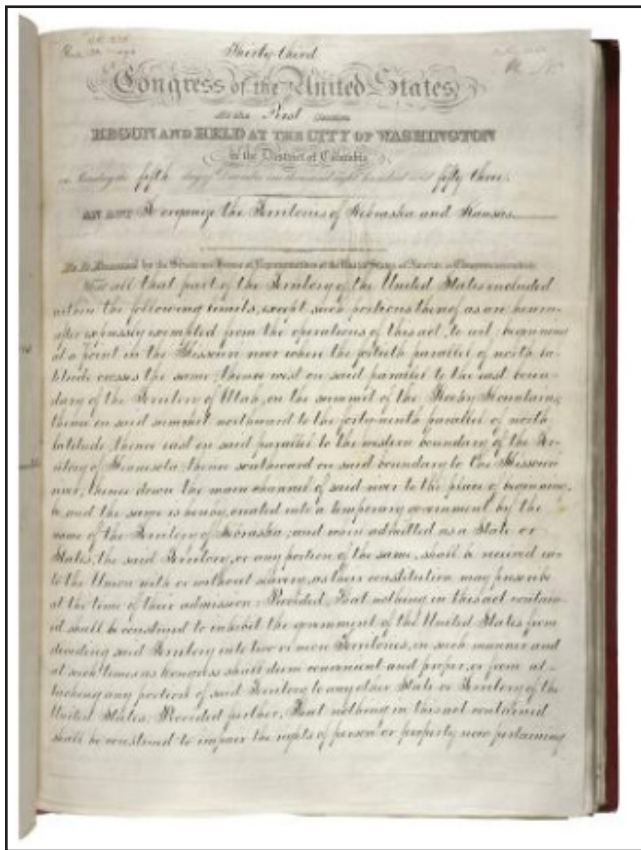 Thirty-third
Congress of the United States,
At the First Session
BEGUN AND HELD AT THE CITY OF WASHINGTON
in the District of Columbia
on Monday the fifth day of December one thousand eight hundred and fifty three.
AN ACT To organize the Territories of Nebraska and Kansas.
Be It Enacted by the Senate and House of Representatives of the United States of America in Congress assembled,
That all that part of the Territory of the United States included
within the following limits, except such portions thereof as are herein-
after expressly exempted from the operations of this act, to wit: beginning
at a point in the Missouri river where the fortieth parallel of north la-
titude crosses the same; thence west on said parallel to the east boun-
dary of the Territory of Utah, on the summit of the Rocky Mountains;
thence on said summit northward to the forty-ninth parallel of north
latitude; thence east on said parallel to the western boundary of the Ter-
ritory of Minnesota; thence southward on said boundary to the Missouri
river; thence down the main channel of said river to the place of beginning,
be, and the same is hereby, created into a temporary government by the
name of the Territory of Nebraska; and when admitted as a State or
States, the said Territory, or any portion of the same, shall be received in-
to the Union with or without slavery, as their constitution may prescribe
at the time of their admission: Provided, That nothing in this act contain-
ed shall be construed to inhibit the government of the United States from
dividing said Territory into two or more Territories, in such manner and
at such times as Congress shall deem convenient and proper, or from at-
taching any portion of said Territory to any other State or Territory of the
United States: Provided further, That nothing in this act contained
shall be construed to impair the rights of person or property now pertaining